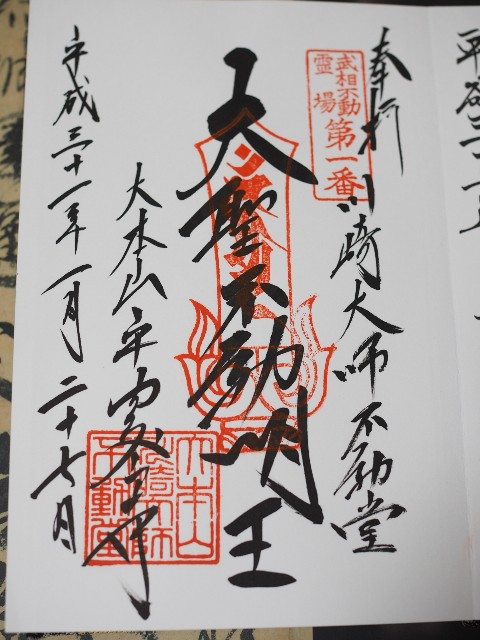 奉拝 川崎大師不動堂
武相不動
霊場
第一番
大聖不動明王
大本山平間寺
平成三十一年一月二十七日
大本山
川崎大師
不動堂